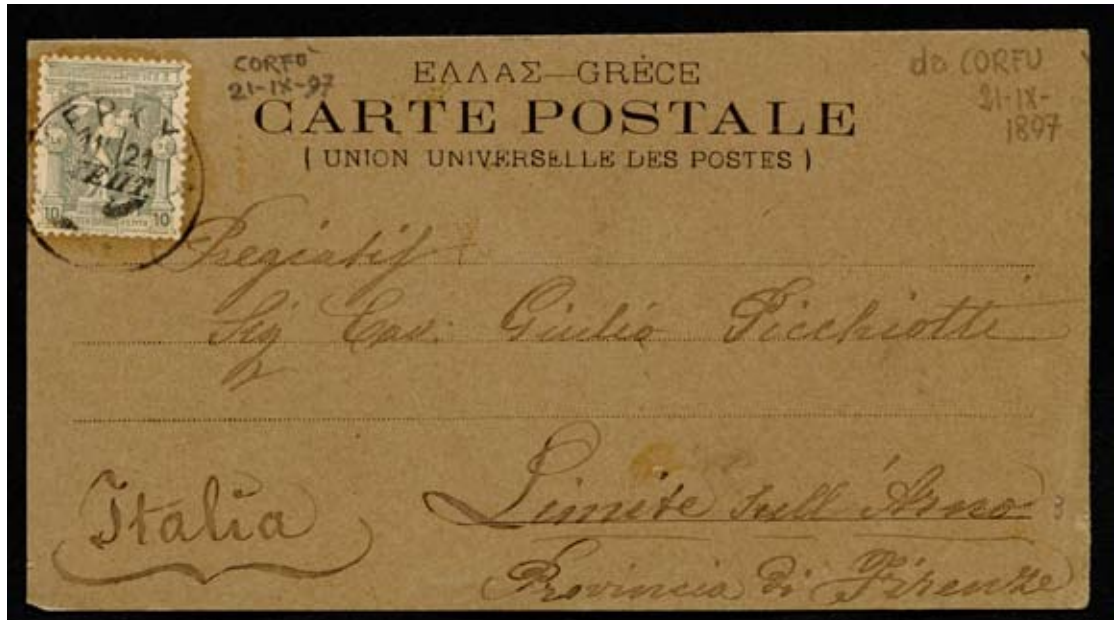 CORFÙ
21-IX-97
ΕΛΛΑΣ—GRÈCE
CARTE POSTALE
( UNION UNIVERSELLE DES POSTES )
da CORFU
21-IX-
1897
ΚΕΡΚΥ
11 21
ΣΕΠΤ.
10 10
Pregiatis
Sig Cav. Giulio Picchiotti
Limite sull'Arno
Provincia di Firenze
Italia